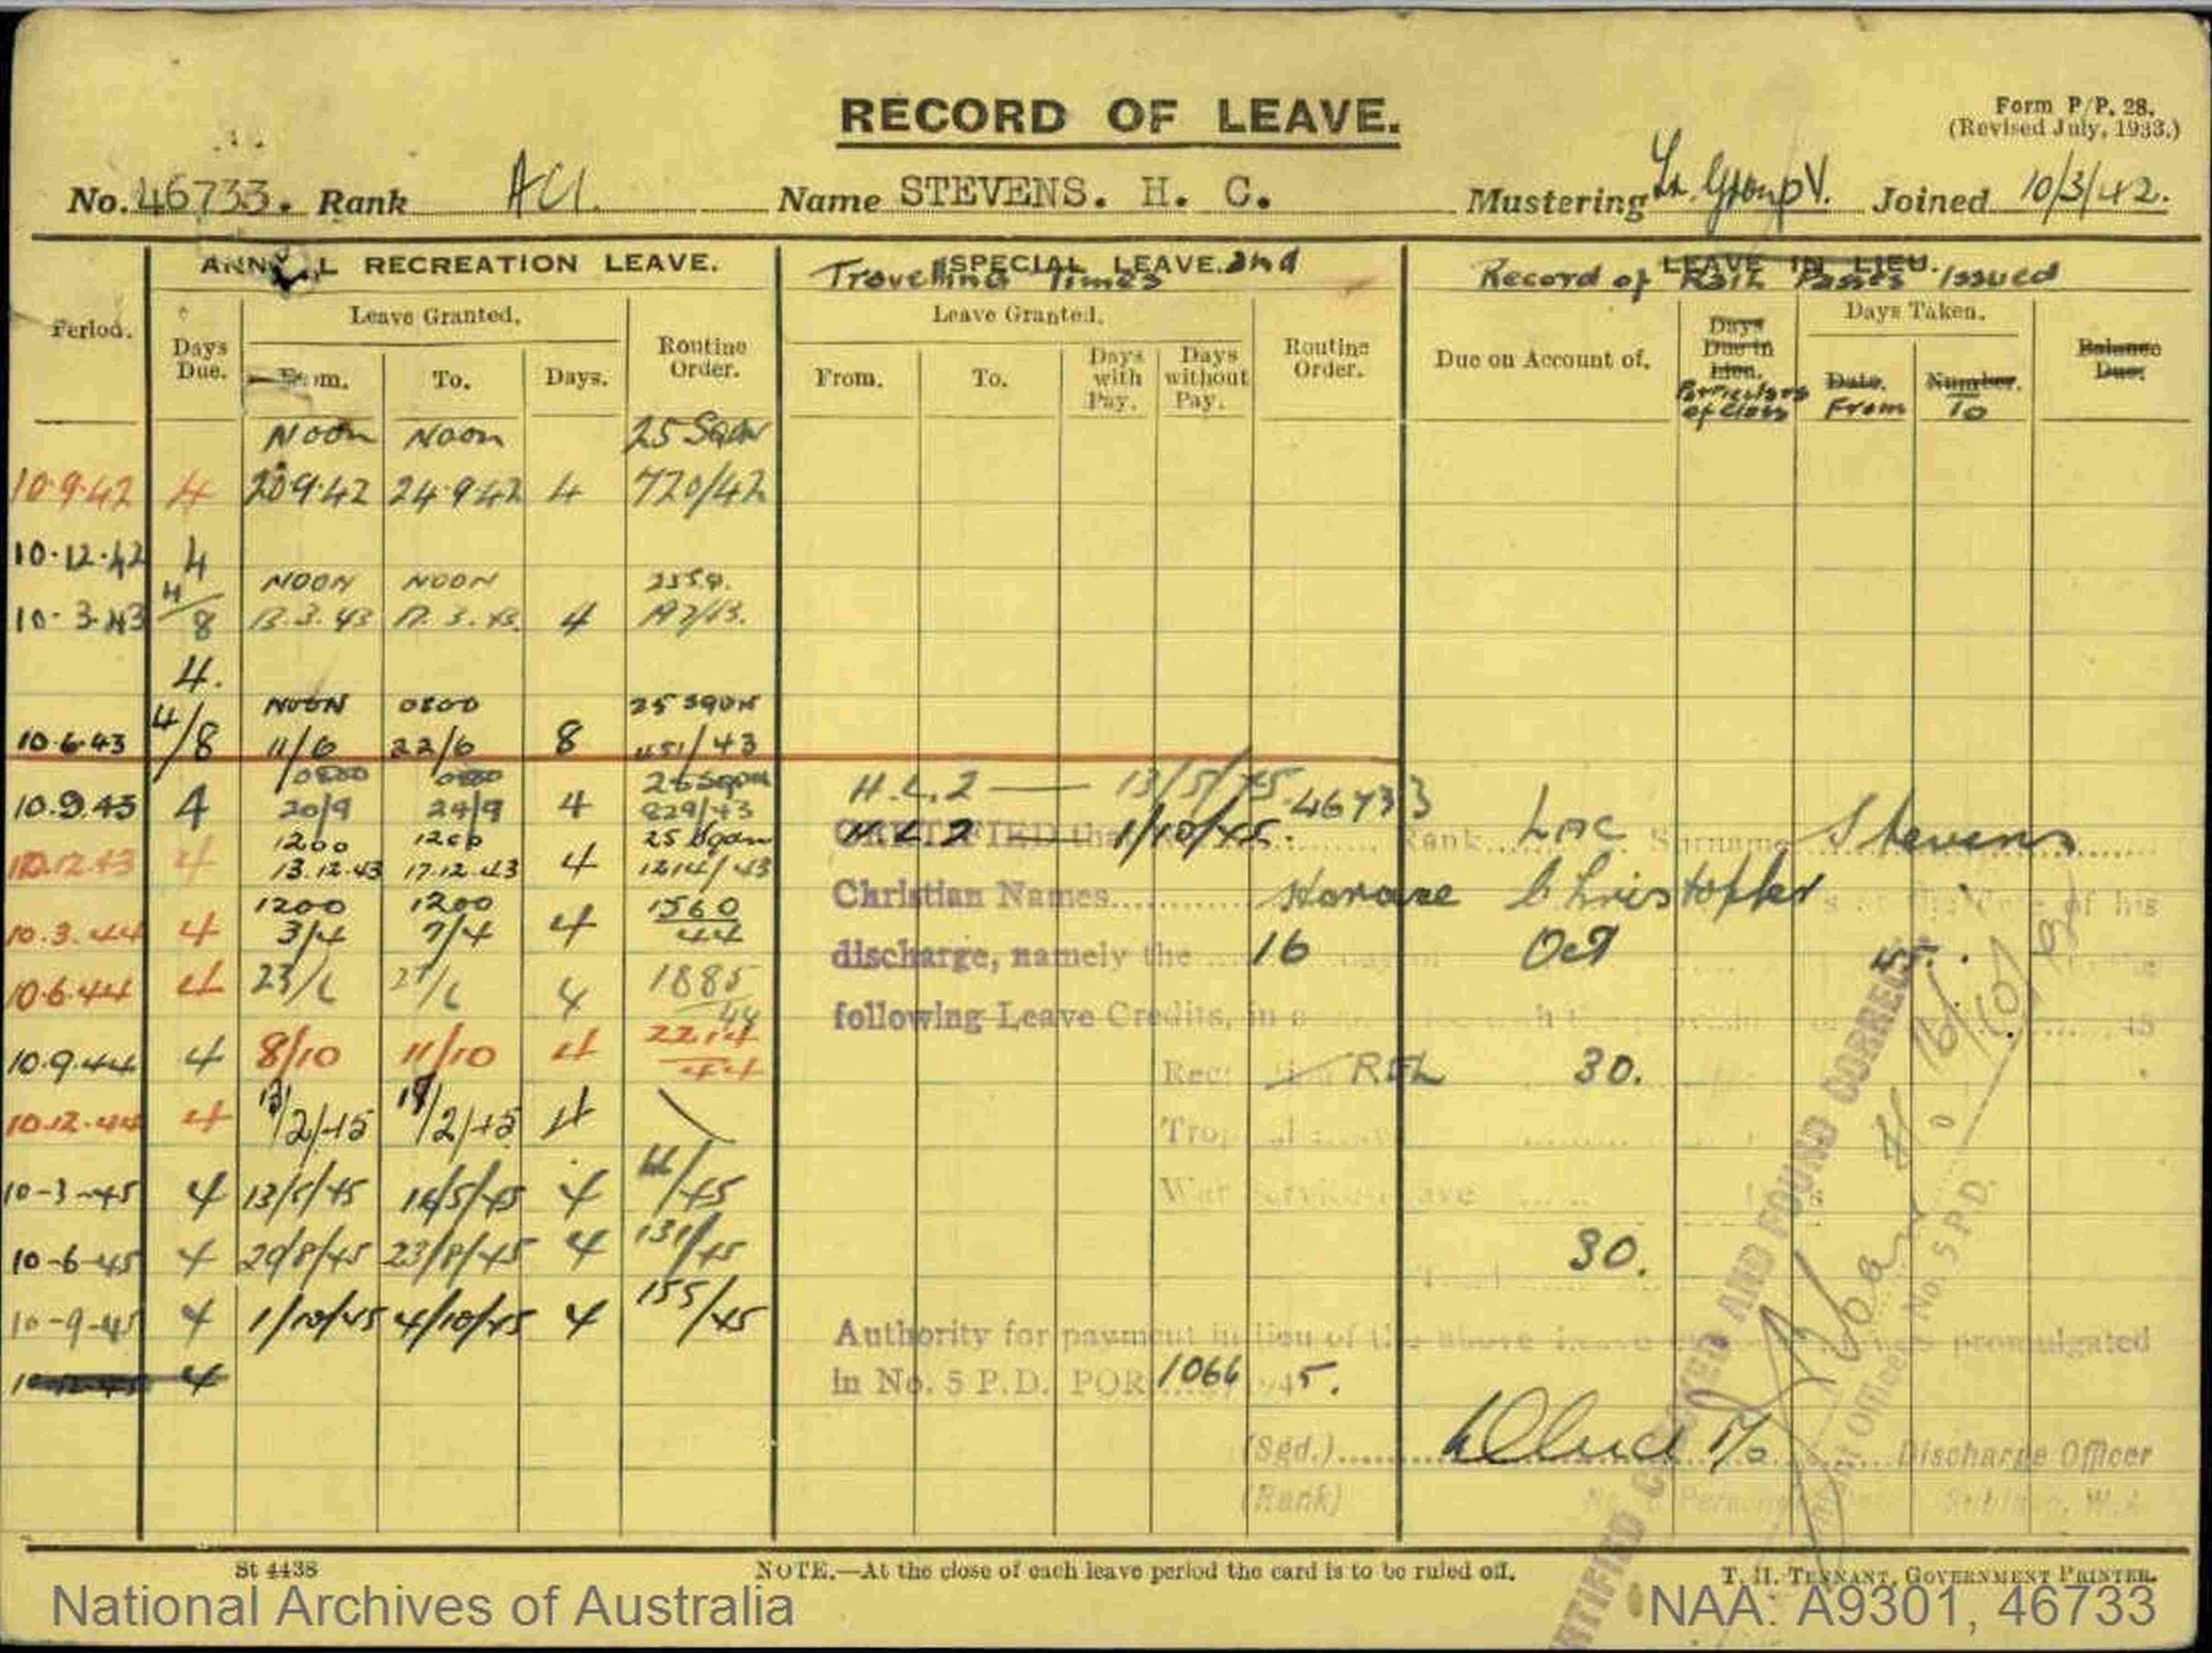 RECORD OF LEAVE.
Form P/P. 28.
(Revised July, 1933.)
No. 46733. Rank AC1. Name STEVENS. H. C. Mustering Group V. Joined 10/3/42.
RECREATION LEAVE. SPECIAL LEAVE. and LEAVE IN LIEU.
Travelling Times Record of Rail Passes Issued
Period. Days Due. Leave Granted. From. To. Days. Routine Order. Leave Granted. From. To. Days with Pay. Days without Pay. Routine Order. Due on Account of. Days Due in Lieu. Particulars of Class Days Taken. Date. From Number. To Balance Due.
NOON NOON 25 Sqdn
10.9.42 4 20.9.42 24.9.42 4 720/42
10.12.42 4
NOON NOON
10.3.43 4/8 13.3.43 17.3.43 4
4.
NOON 0800 25 SQDN
10.6.43 4/8 11/6 22/6 8 451/43
0800 0800 25 Sqdn
10.9.43 4 20/9 24/9 4 829/43
1200 1200 25 Sqdn
10.12.43 4 13.12.43 17.12.43 4 1214/43
1200 1200 1560
10.3.44 4 3/4 7/4 4 44
10.6.44 4 23/6 27/6 4 1885/44
10.9.44 4 8/10 11/10 4 2214/44
10.12.44 4 /2/45 /2/45 4
10-3-45 4 13/5/45 16/5/45 4 /45
10-6-45 4 20/8/45 23/8/45 4 131/45
10-9-45 4 1/10/45 4/10/45 4 155/45
4
H.L.2 — 13/5/45
H.L.2 — 1/10/45.
CERTIFIED that 46733 Rank LAC Surname Stevens
Christian Names Horace Christopher of his
discharge, namely the 16 Oct 45.
following Leave Credits, in
REL 30.
War Service Leave
30.
Authority for payment in lieu of the above Leave promulgated
in No. 5 P.D. POR 1066 45.
(Sgd.) Discharge Officer
(Rank)
CERTIFIED CHECKED AND FOUND CORRECT
16/10/45
No. 5 P.D.
St 4438
NOTE.—At the close of each leave period the card is to be ruled off.
T. H. TENNANT, GOVERNMENT PRINTER.
National Archives of Australia
NAA: A9301, 46733